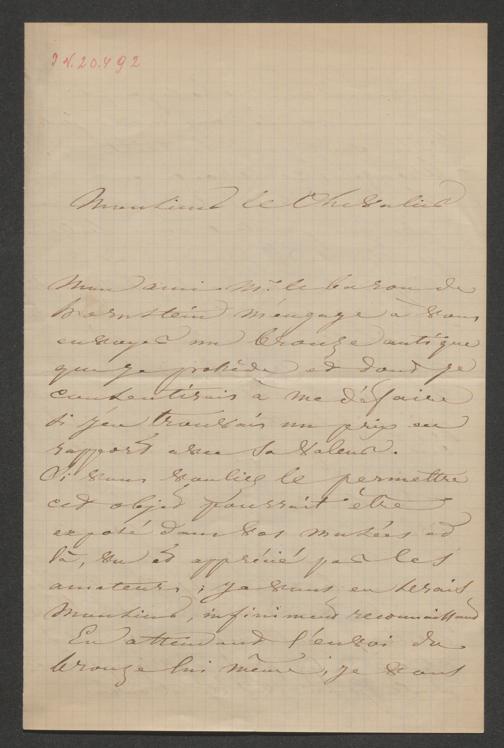 I.N. 20.492
Monsieur le Chevalier
Mon ami Mr. le baron de
Bornstein m'engage à vous
envoyer un bronze antique
que je possède et dont je
consentirais à me défaire
si j'en trouvais un prix en
rapport avec sa valeur.
Si vous vouliez le permettre
cet objet pourrait être
exposé dans vos musées et
là, vu et apprécié par les
amateurs ; je vous en serais
Monsieur, infiniment reconnaissant
En attendant l'envoi du
bronze lui même, je vous